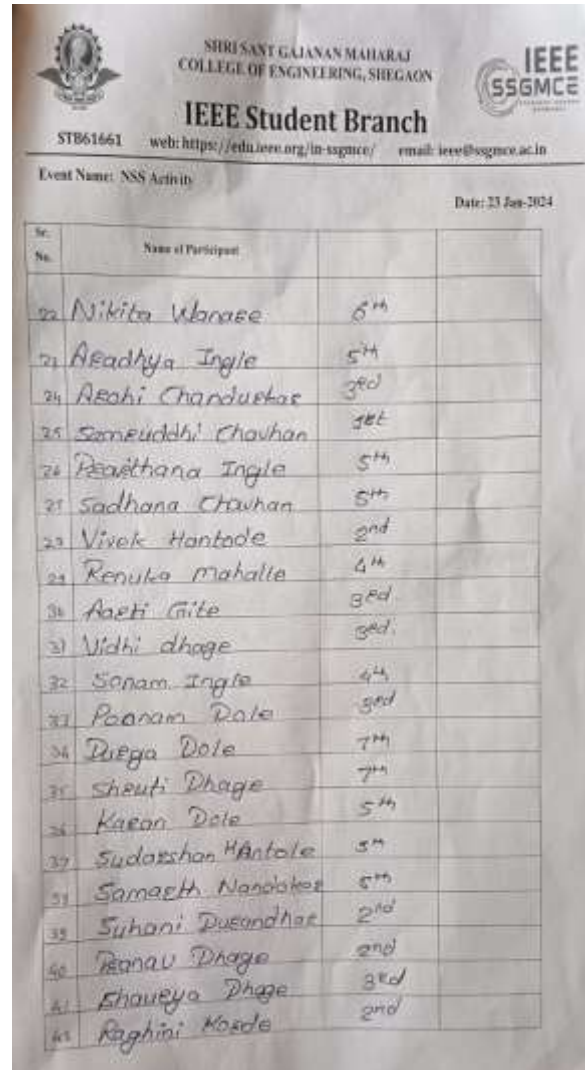 SHRI SANT GAJANAN MAHARAJ
COLLEGE OF ENGINEERING, SHEGAON
IEEE
SSGMCE
IEEE Student Branch
STB61661 web: https://edu.ieee.org/in-ssgmce/ email: ieee@ssgmce.ac.in
Event Name: NSS Activity
Date: 23 Jan-2024
Sr. No. Name of Participant
22 Nikita Wanare 6th
23 Aradhya Ingle 5th
24 Arohi Chandurkar 3rd
25 Samruddhi Chavhan 1st
26 Prarthana Ingle 5th
27 Sadhana Chavhan 5th
Vivek Hantode 2nd
29 Renuka Mahalle 4th
30 Aarti Gite 3rd
31 Vidhi dhage 3rd.
32 Sonam Ingle 4th
33 Poonam Dole 3rd
34 Durga Dole 7th
35 Shruti Dhage 7th
36 Karan Dole 5th
37 Sudarshan Hantole 5th
Samarth 5th
39 Suhani Durandhar 2nd
40 Pranav Dhage 2nd
41 Dhage 3rd
Raghini 2nd